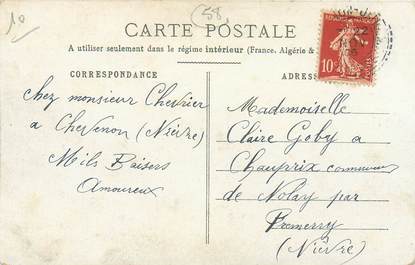 10
58
CARTE POSTALE
A utiliser seulement dans le régime intérieur (France, Algérie &
CORRESPONDANCE
ADRES
10c
POSTES
chez monsieur Chevrier
a Chevenon (Nièvre)
Mils Baisers
Amoureux
Mademoiselle
Claire Goby a
Chauprix commune
de Nolay par
Premerry
(Nièvre)